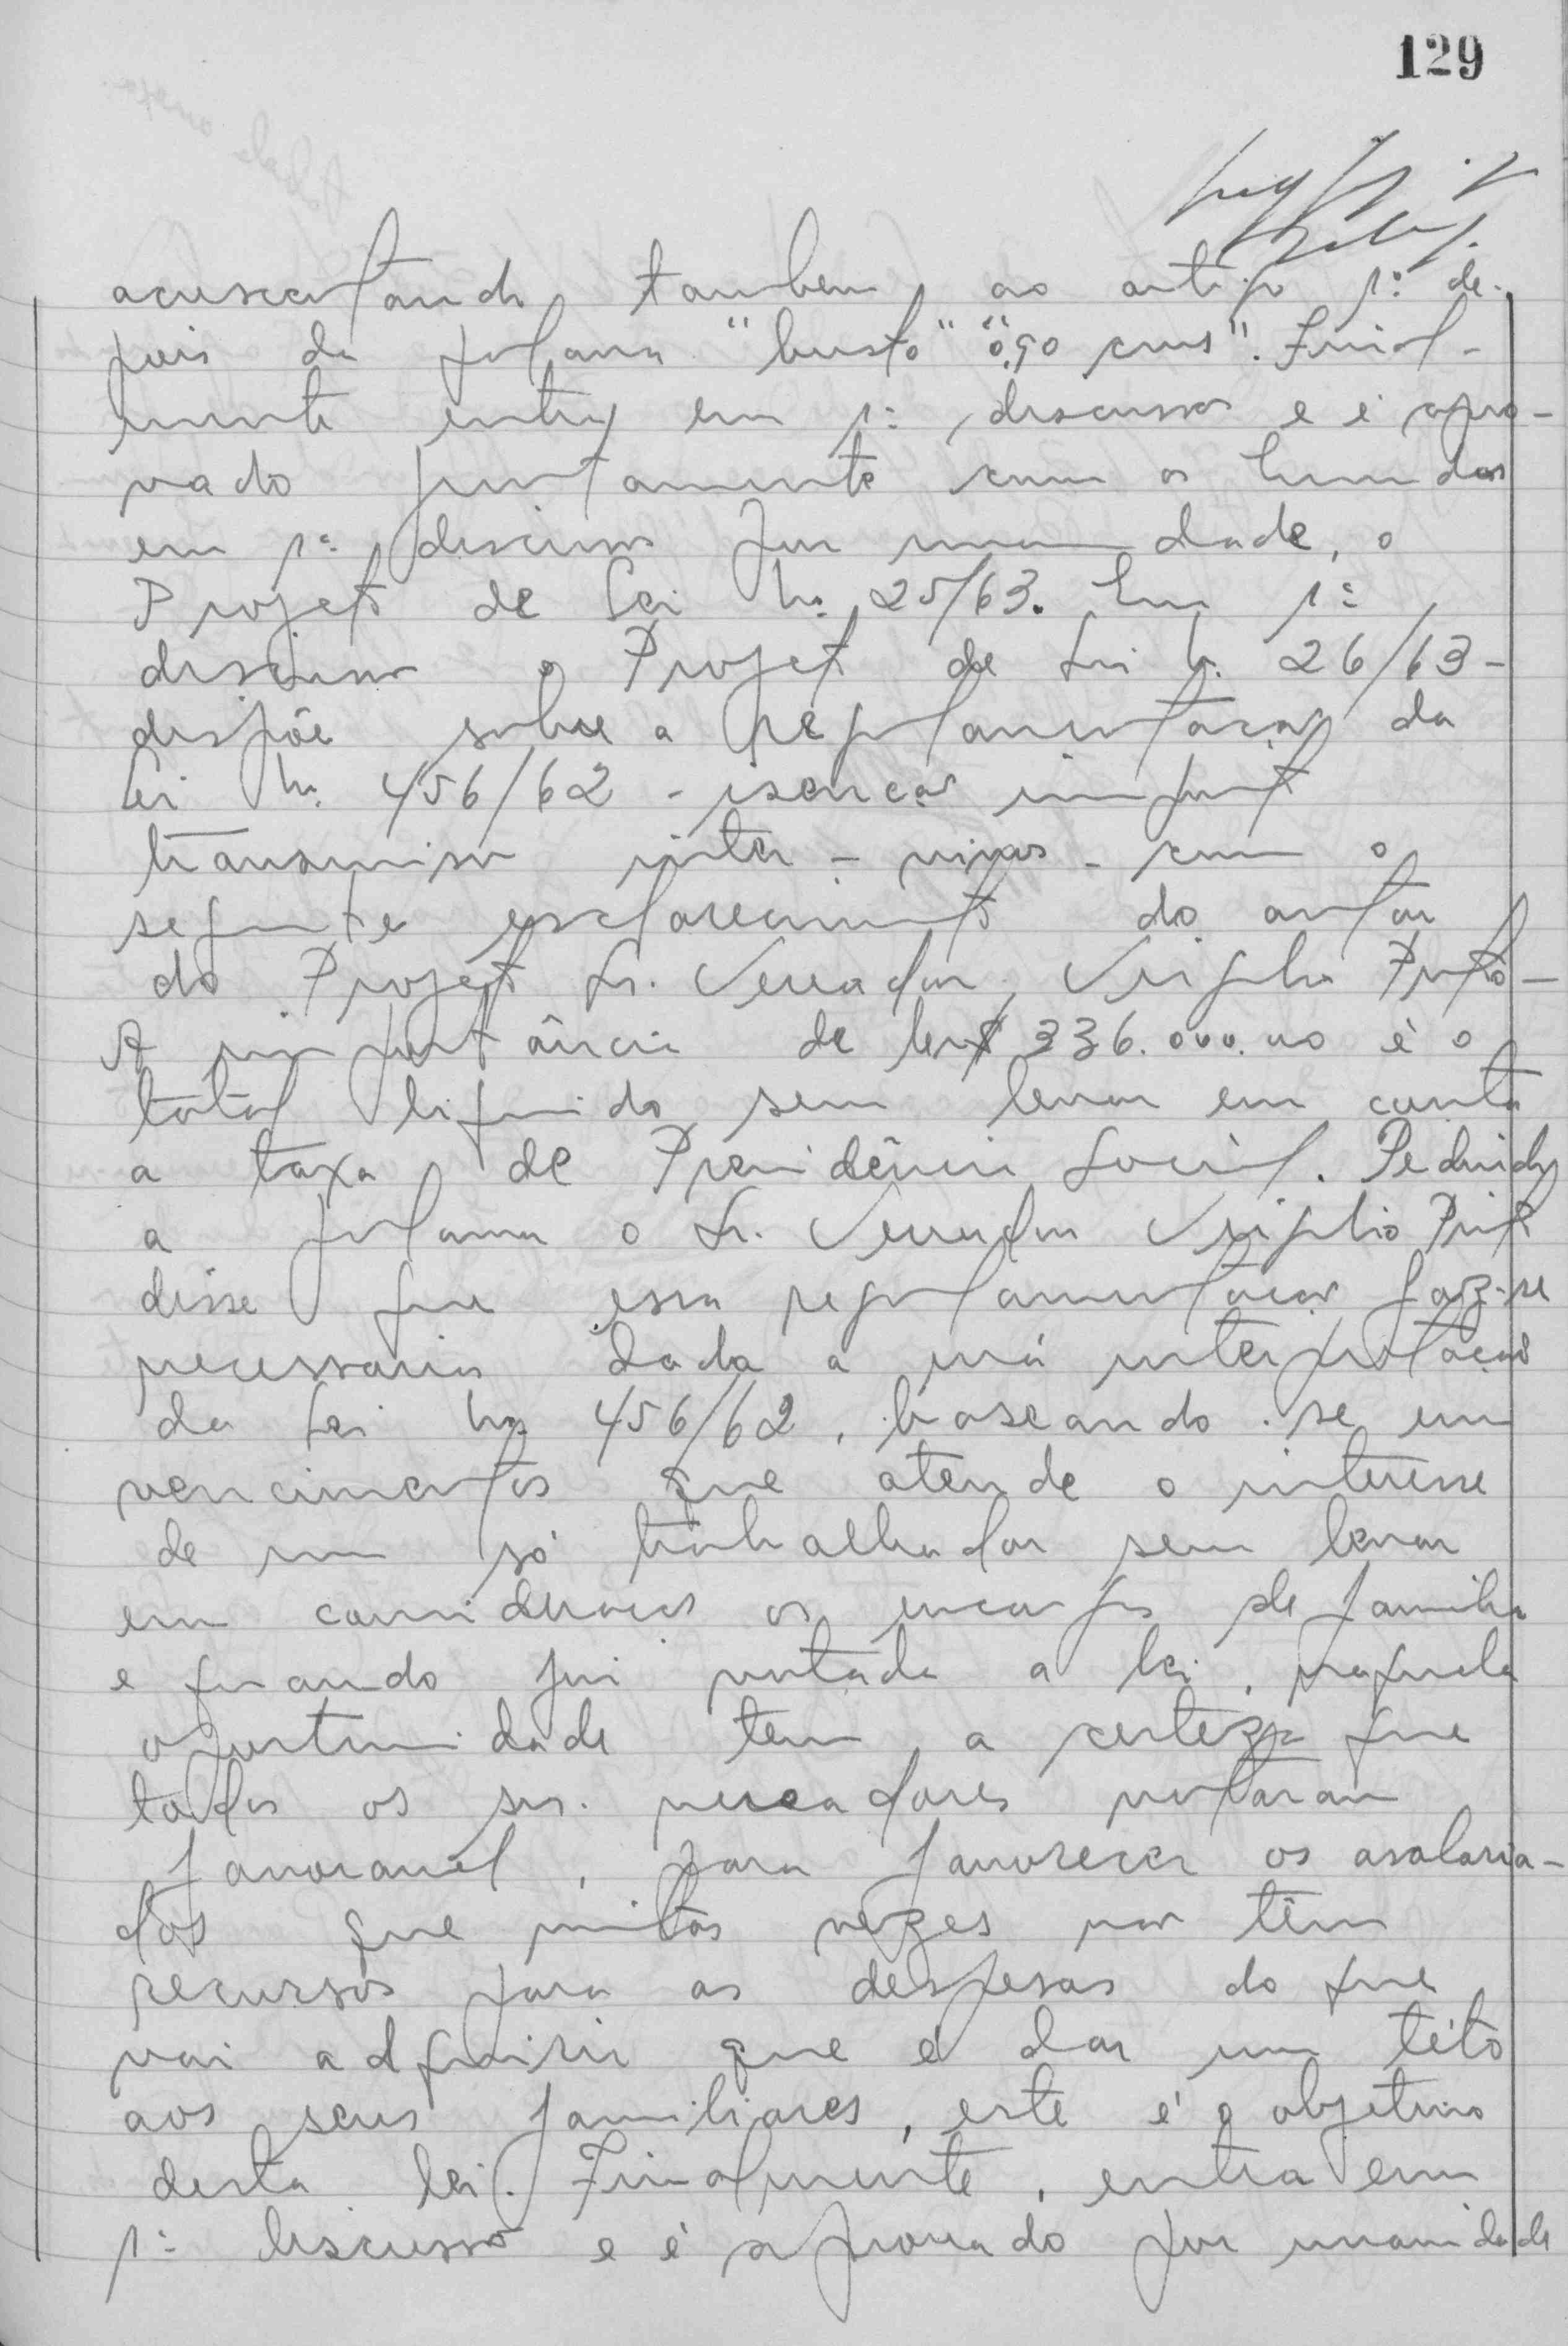 129
acrescentando tambem ao artigo 1º de-
pois da palavra "busto" "0,90 cms". Final-
mente entra em 1ª discussão e é apro-
vado juntamente com as Emendas
em 1ª discussão por unanimidade, o
Projeto de Lei nº 25/63. Em 1ª
discussão o Projeto de Lei nº 26/63-
dispõe sobre a regulamentação da
Lei nº 456/62 - isenção imposto
transmissão inter-vivos - com o
seguinte esclarecimento do autor
do Projeto Sr. Vereador, Virgilio
A importância de Cr$ 336.000.00 é o
total liquido sem levar em conta
a taxa de Previdência Social. Pedindo
a palavra o Sr. Vereador Virgilio
disse que essa regulamentação faz-se
necessario dada a má interpretação
da Lei nº 456/62, baseando-se em
vencimentos que atende o interesse
de um só trabalhador sem levar
em consideração os encargos de familia
e quando foi votada a lei, naquela
oportunidade tem a certeza que
todos os srs. vereadores votaram
favoravel, para favorecer os assalaria-
dos que muitas vezes não têm
recursos para as despesas do que
vai adquirir que é dar um této
aos seus familiares, este é o objetivo
desta lei. Finalmente, entra em
1ª discussão e é aprovado por unanimidade